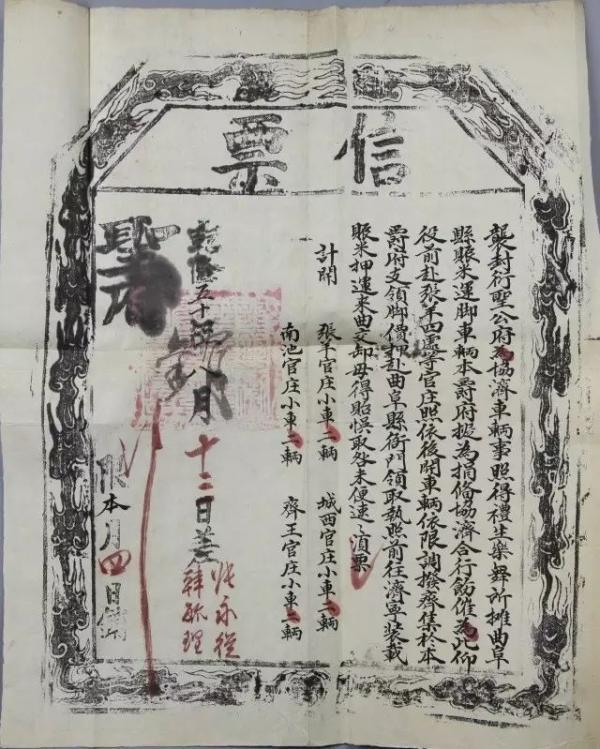 信票
襲封衍聖公府為協濟車輛事照得禮生樂舞所攤曲阜
縣賬米運脚車輛本爵府擬為捐備協濟合行飭催為此仰
役前赴張羊四處等官庄照依後開車輛依限調撥齊集於本
爵府支領脚價押赴曲阜縣衙門領取執照前往濟寧裝載
賬米押運来曲交卸毋得貽悞取咎未便速速須票
計開
張羊官庄小車二輛 城西官庄小車二輛
南池官庄小車二輛 齊王官庄小車二輛
乾隆五十 年八月十二日差
張永從
韓
限本月四日銷